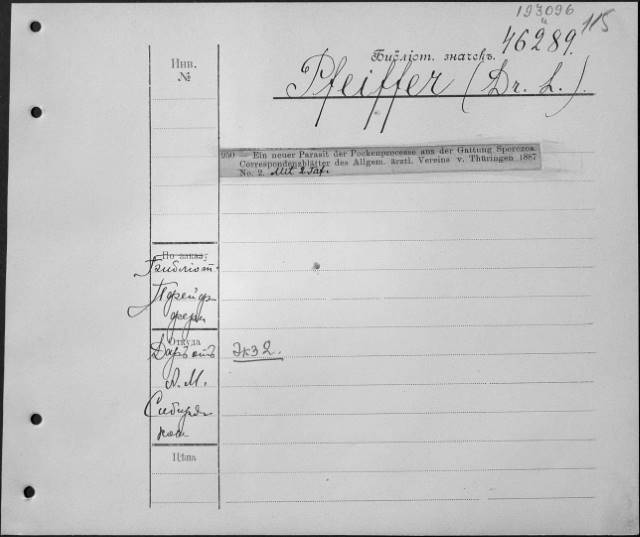 193096
46289. 115
Инв.
№
Библіот. значекъ.
Pfeiffer (Dr. L.).
950 — Ein neuer Parasit der Pockenprocesse aus der Gattung Sporozoa.
Correspondenzblätter des Allgem. ärztl. Vereins v. Thüringen 1887
No. 2. Mit 2 Taf.
По заказу
Библіот.
Пфейф
фера
Откуда
Даръ отъ Экз 2.
А. М.
Сибиря
кова
Цѣна